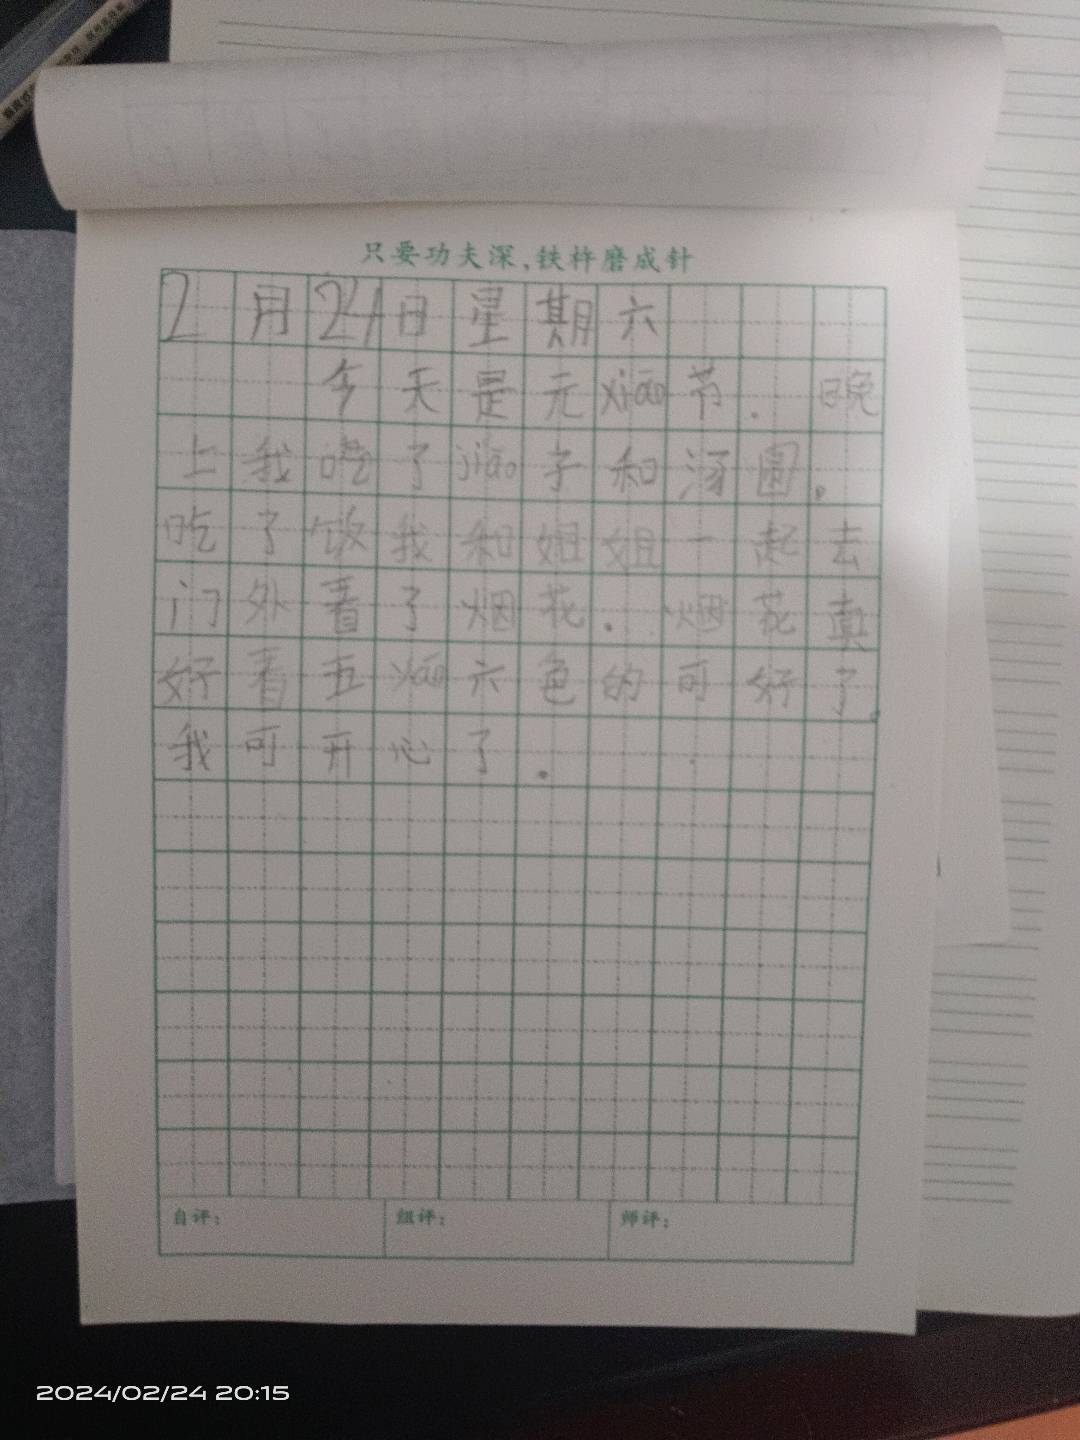 只要功夫深,铁杵磨成针
2月24日星期六
今天是元xiāo节.晚
上我吃了jiǎo子和汤圆。
吃了饭我和姐姐一起去
门外看了烟花.烟花真
好看五yán六色的可好了。
我可开心了.
自评: 组评: 师评:
2024/02/24 20:15